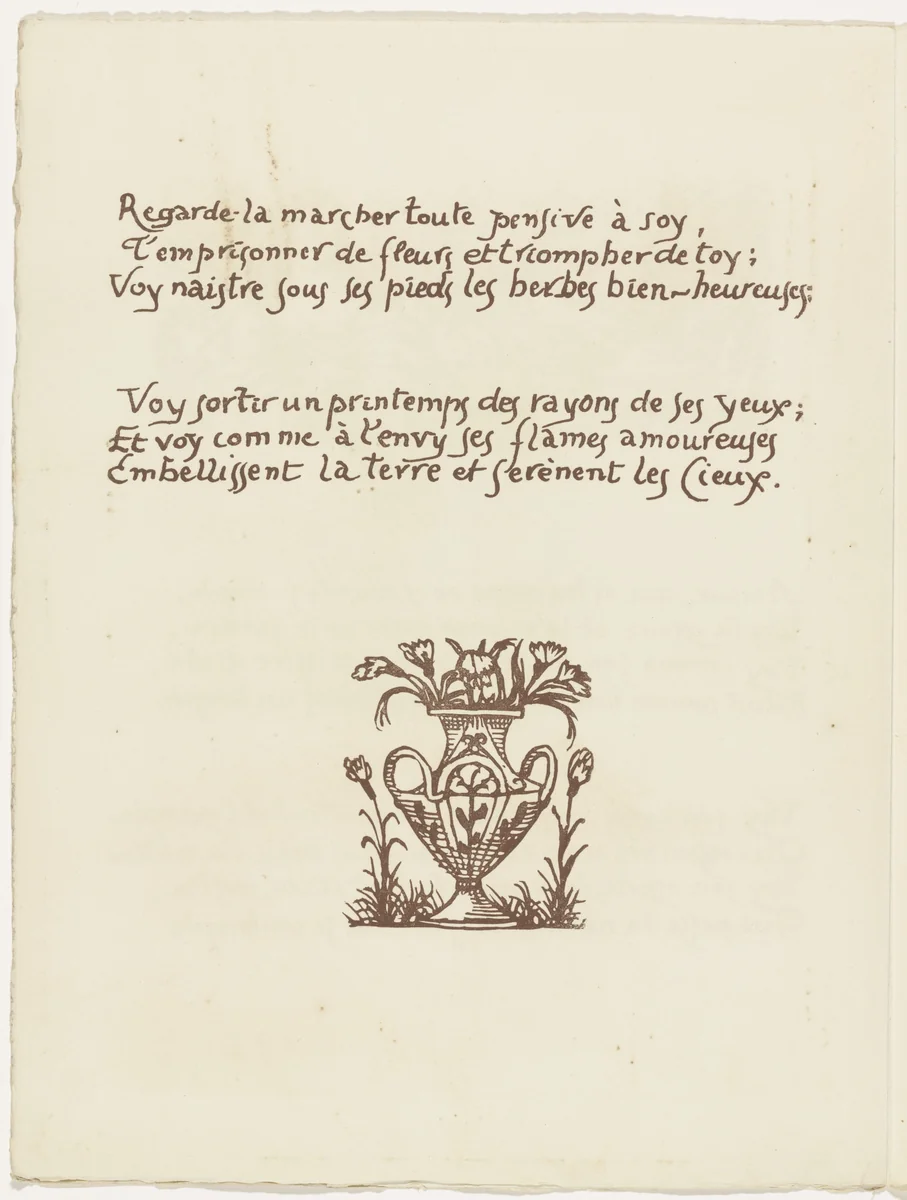 Regarde-la marcher toute pensive à soy,
T'emprisonner de fleurs et triompher de toy;
Voy naistre sous ses pieds les herbes bien-heureuses;
Voy sortir un printemps des rayons de ses yeux;
Et voy comme à l'envy ses flames amoureuses
Embellissent la terre et serènent les Cieux.